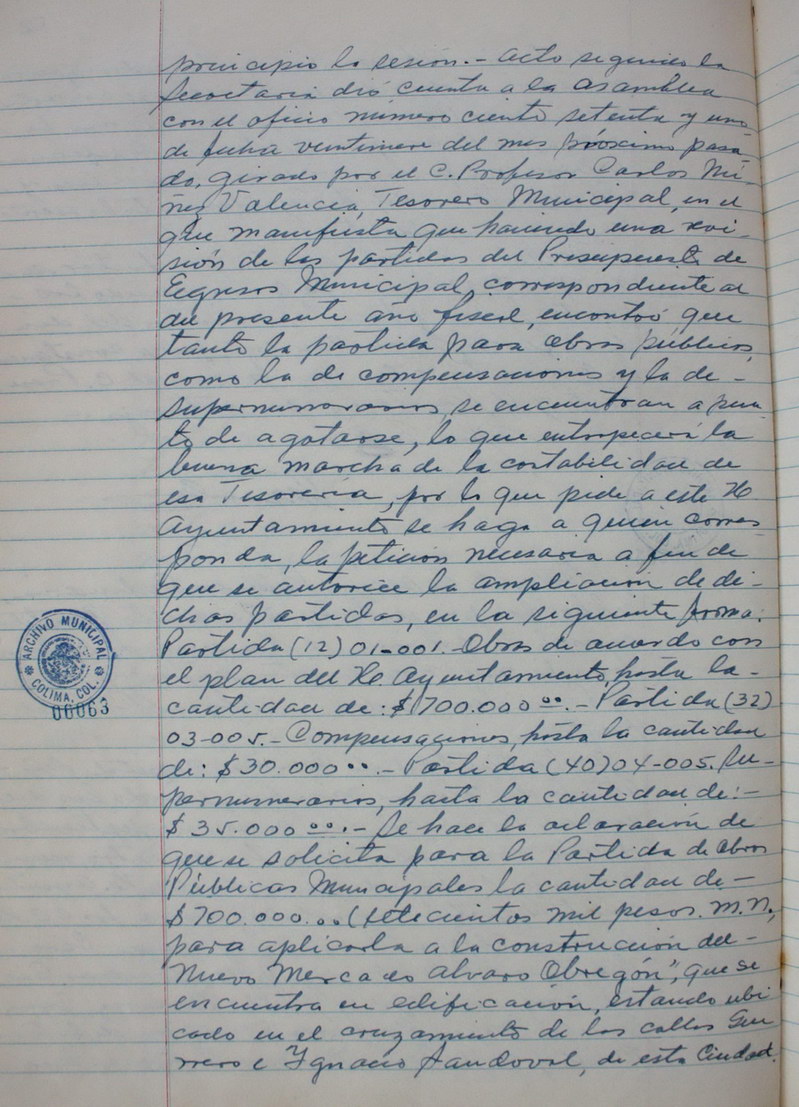 principio la sesión.- Acto seguido la
Secretaria dió cuenta a la asamblea
con el oficio número ciento setenta y uno
de fecha ventinueve del mes próximo pasa-
do, girado por el C. Profesor Carlos Nú-
ñez Valencia, Tesorero Municipal, en el
que manifiesta que haciendo una revi-
sión de las partidas del Presupuesto de
Egresos Municipal, correspondiente al
del presente año fiscal, encontró que
tanto la partida para obras públicas,
como la de compensaciones y la de -
supernumerarios, se encuentran a pun
to de agotarse, lo que entorpecerá la
buena marcha de la contabilidad de
esa Tesorería, por lo que pide a este H.
Ayuntamiento se haga a quien corres-
ponda, la petición necesaria a fin de
que se autorice la ampliación de di-
chas partidas, en la siguiente forma:
Partida (12) 01-001. Obras de acuerdo con
el plan del H. Ayuntamiento, hasta la -
cantidad de: $700.000 00.- Partida (32)
03-005.- Compensaciones, hasta la cantidad
de: $30.000 00.- Partida (40) 04-005. Su-
pernumerarios, hasta la cantidad de:-
$35.000 00.- Se hace la aclaración de
que se solicita para la Partida de Obras
Públicas Municipales la cantidad de -
$700.000.00 (setecientos mil pesos. M.N.,
para aplicarla a la construcción del -
Nuevo Mercado Alvaro Obregón", que se
encuentra en edificación, estando ubi
cado en el cruzamiento de las calles Gue
rrero e Ygnacio Sandoval, de esta Ciudad.
ARCHIVO MUNICIPAL
COLIMA, COL.
06063